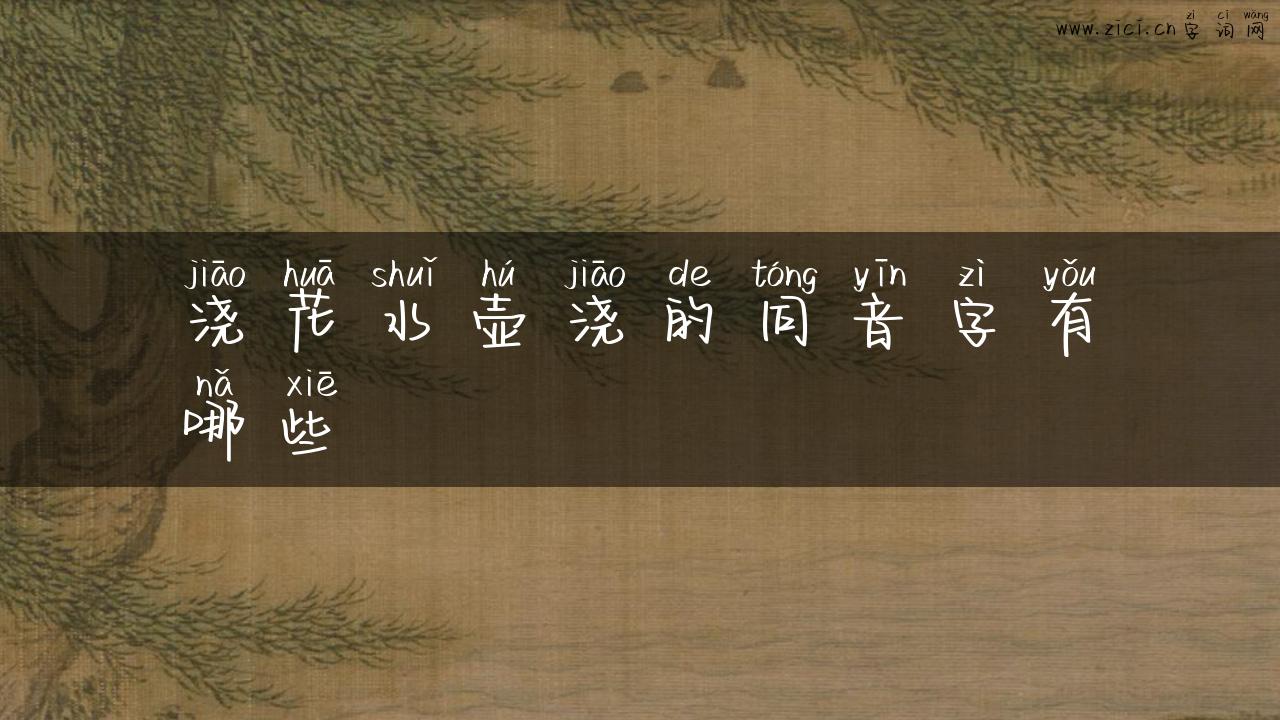 zì cí wǎng
www.zici.cn 字词网
jiāo huā shuǐ hú jiāo de tóng yīn zì yǒu
浇花水壶浇的同音字有
nǎ xiē
哪些